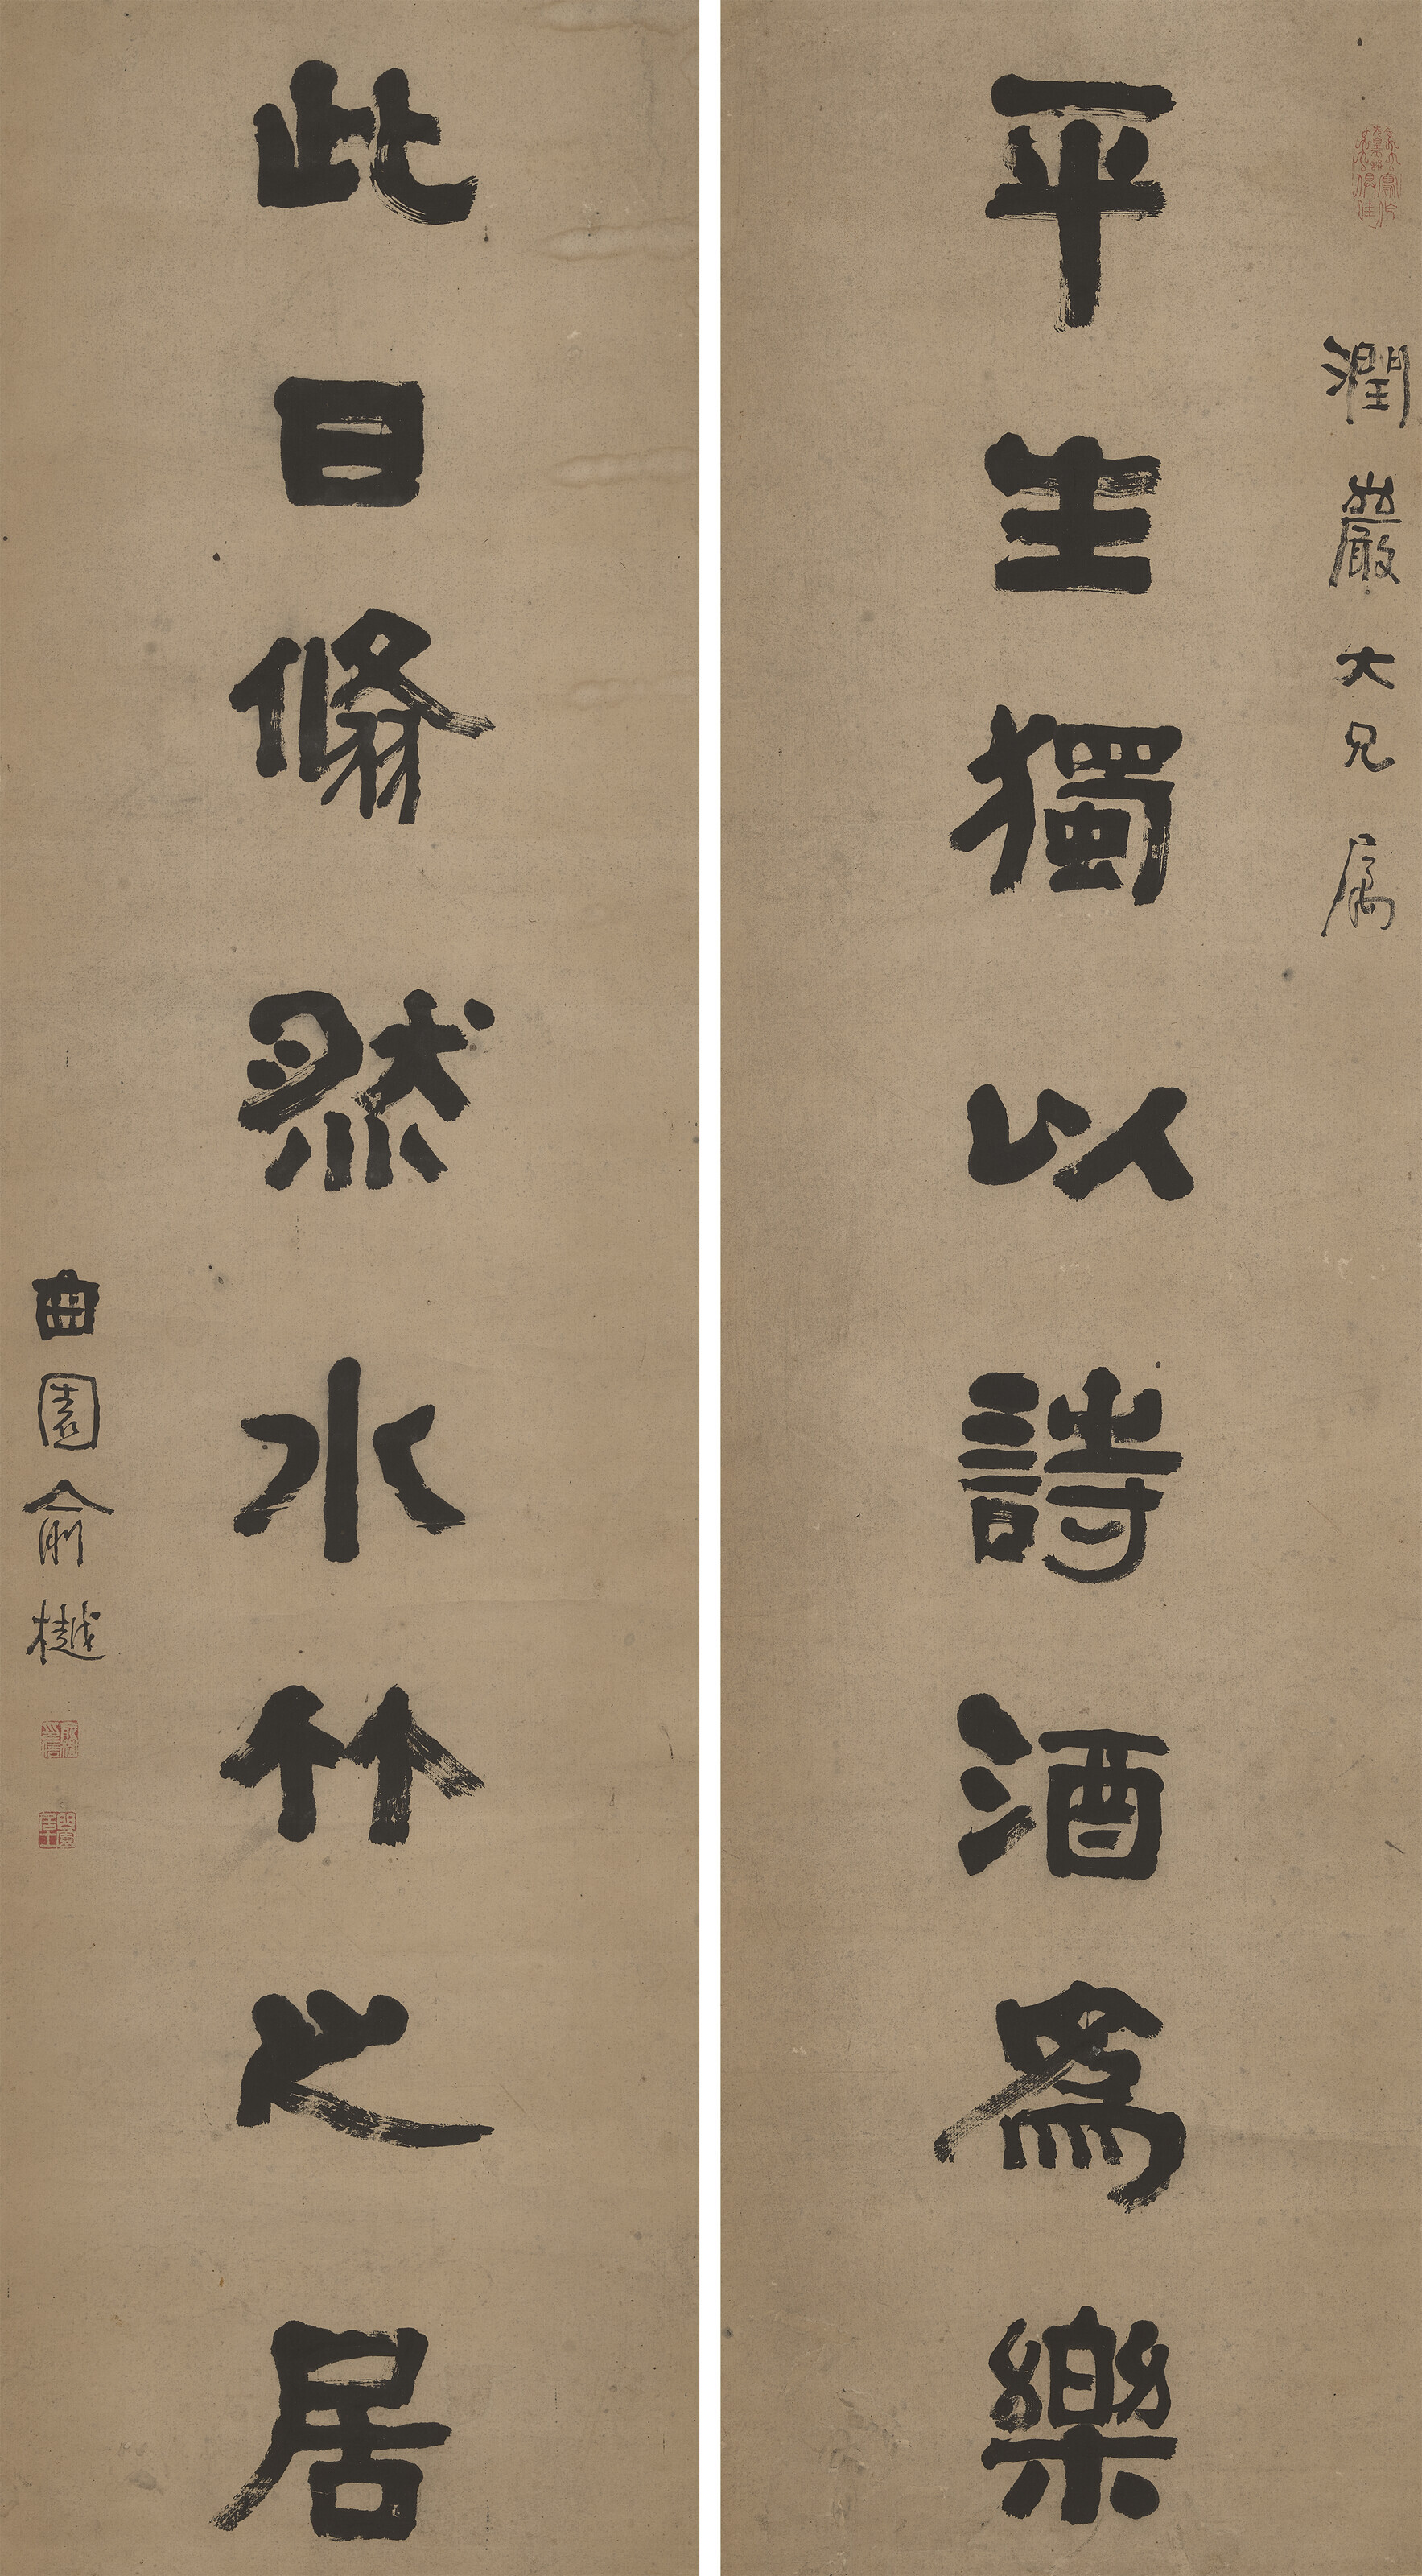 潤巖大兄屬
平生獨以詩酒爲樂
此日翛然水竹之居
曲園俞樾